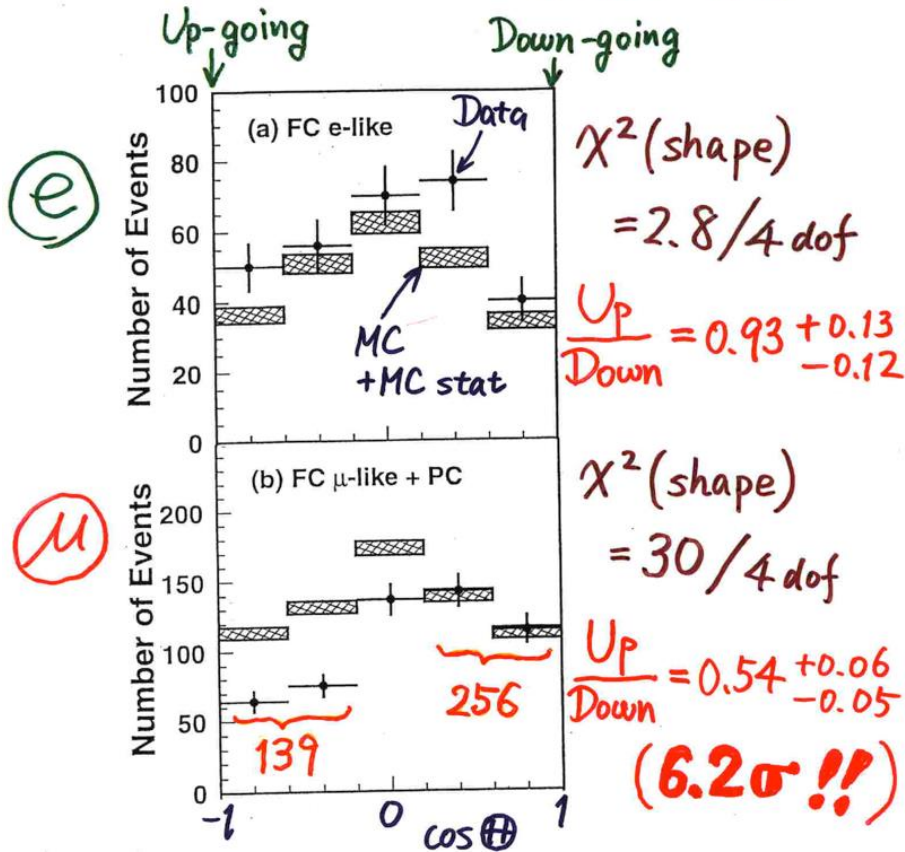 Up-going
Down-going
100
80
60
40
20
0
Number of Events
(a) FC e-like
Data
MC
+MC stat
e
χ² (shape)
= 2.8/4 dof
Up/Down = 0.93 +0.13 -0.12
200
150
100
50
0
Number of Events
(b) FC μ-like + PC
139
256
μ
χ² (shape)
= 30/4 dof
Up/Down = 0.54 +0.06 -0.05
(6.2σ !!)
-1
0
1
cos Ⓗ